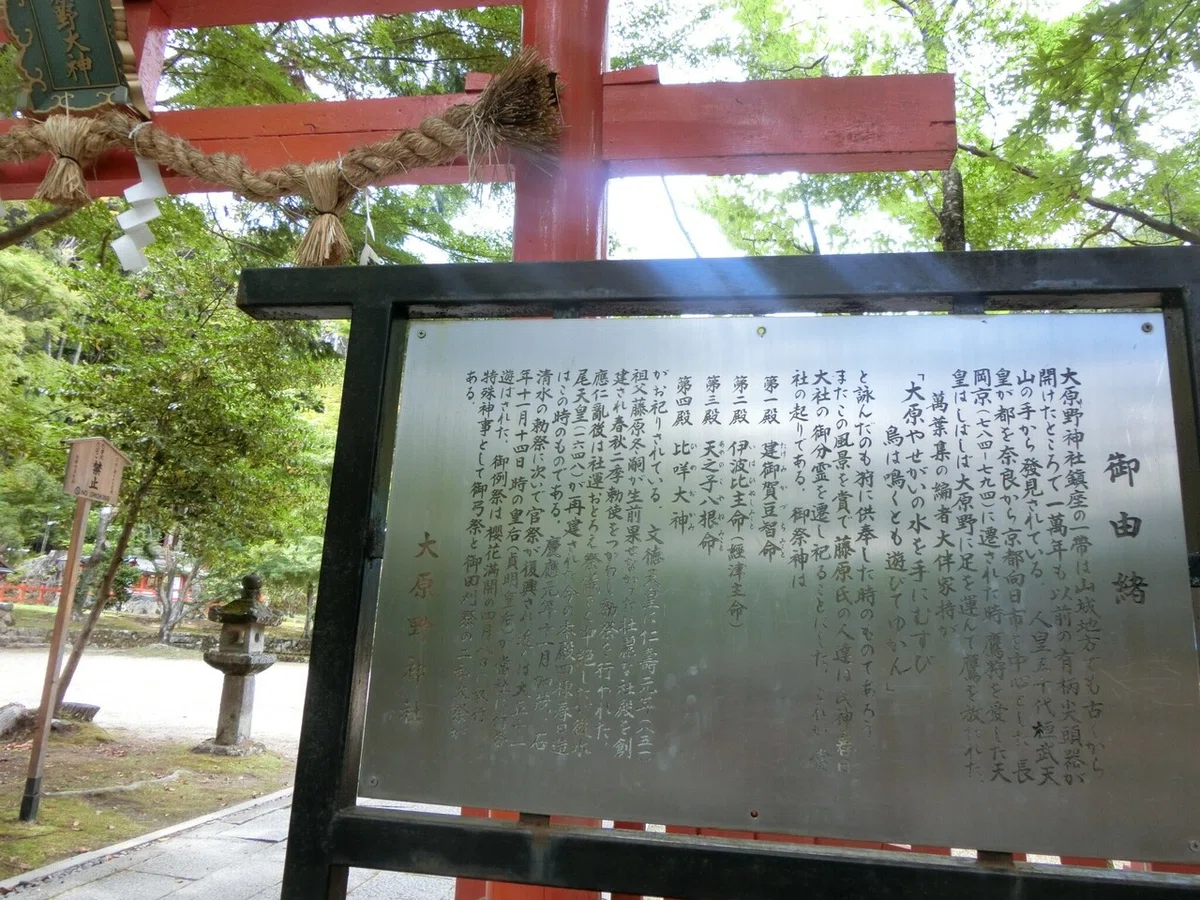 御由緒
大原野神社鎮座の一帯は山城地方でも古くから
開けたところで一萬年も以前の有柄尖頭器が
山の手から發見されている 人皇五十代 桓武天
皇が都を奈良から京都向日市を中心とした長
岡京(七八四-七九四)に遷された時、鷹狩を愛した天
皇はしばしば大原野に足を運んで鷹を放たれた、
萬葉集の編者大伴家持が
「大原やせがいの水を手にむすび
鳥は鳴くとも遊びてゆかん」
と詠んだのも狩に供奉した時のものであろう
またこの風景を賞で藤原氏の人達は氏神春日
大社の御分霊を遷し祀ることにした、これが當
社の起りである、御祭神は
第一殿 建御賀豆智命
第二殿 伊波比主命(經津主命)
第三殿 天之子八根命
第四殿 比咩大神
がお祀りされている、 文徳天皇は仁壽元年(八五一)
祖父藤原冬嗣が生前果せなかった壮麗な社殿を創
建され春秋二季勅使をつかわし勅祭を行われた
應仁亂後は社運おとろえ祭儀も中絶した 後水
尾天皇(一六四八)が再建され 今の本殿四棟春日造
はこの時のものである、慶應元年 石
清水の勅祭に次いで官祭が復興され近くは大正十一
年十一月十四日時の皇后(貞明皇后)が 行啓
遊ばされた、御例祭は櫻花満開の四月八日 執行
特殊神事として御弓祭と御田刈祭の二
ある。
大原野神社
野大神
禁止
NO SMOKING